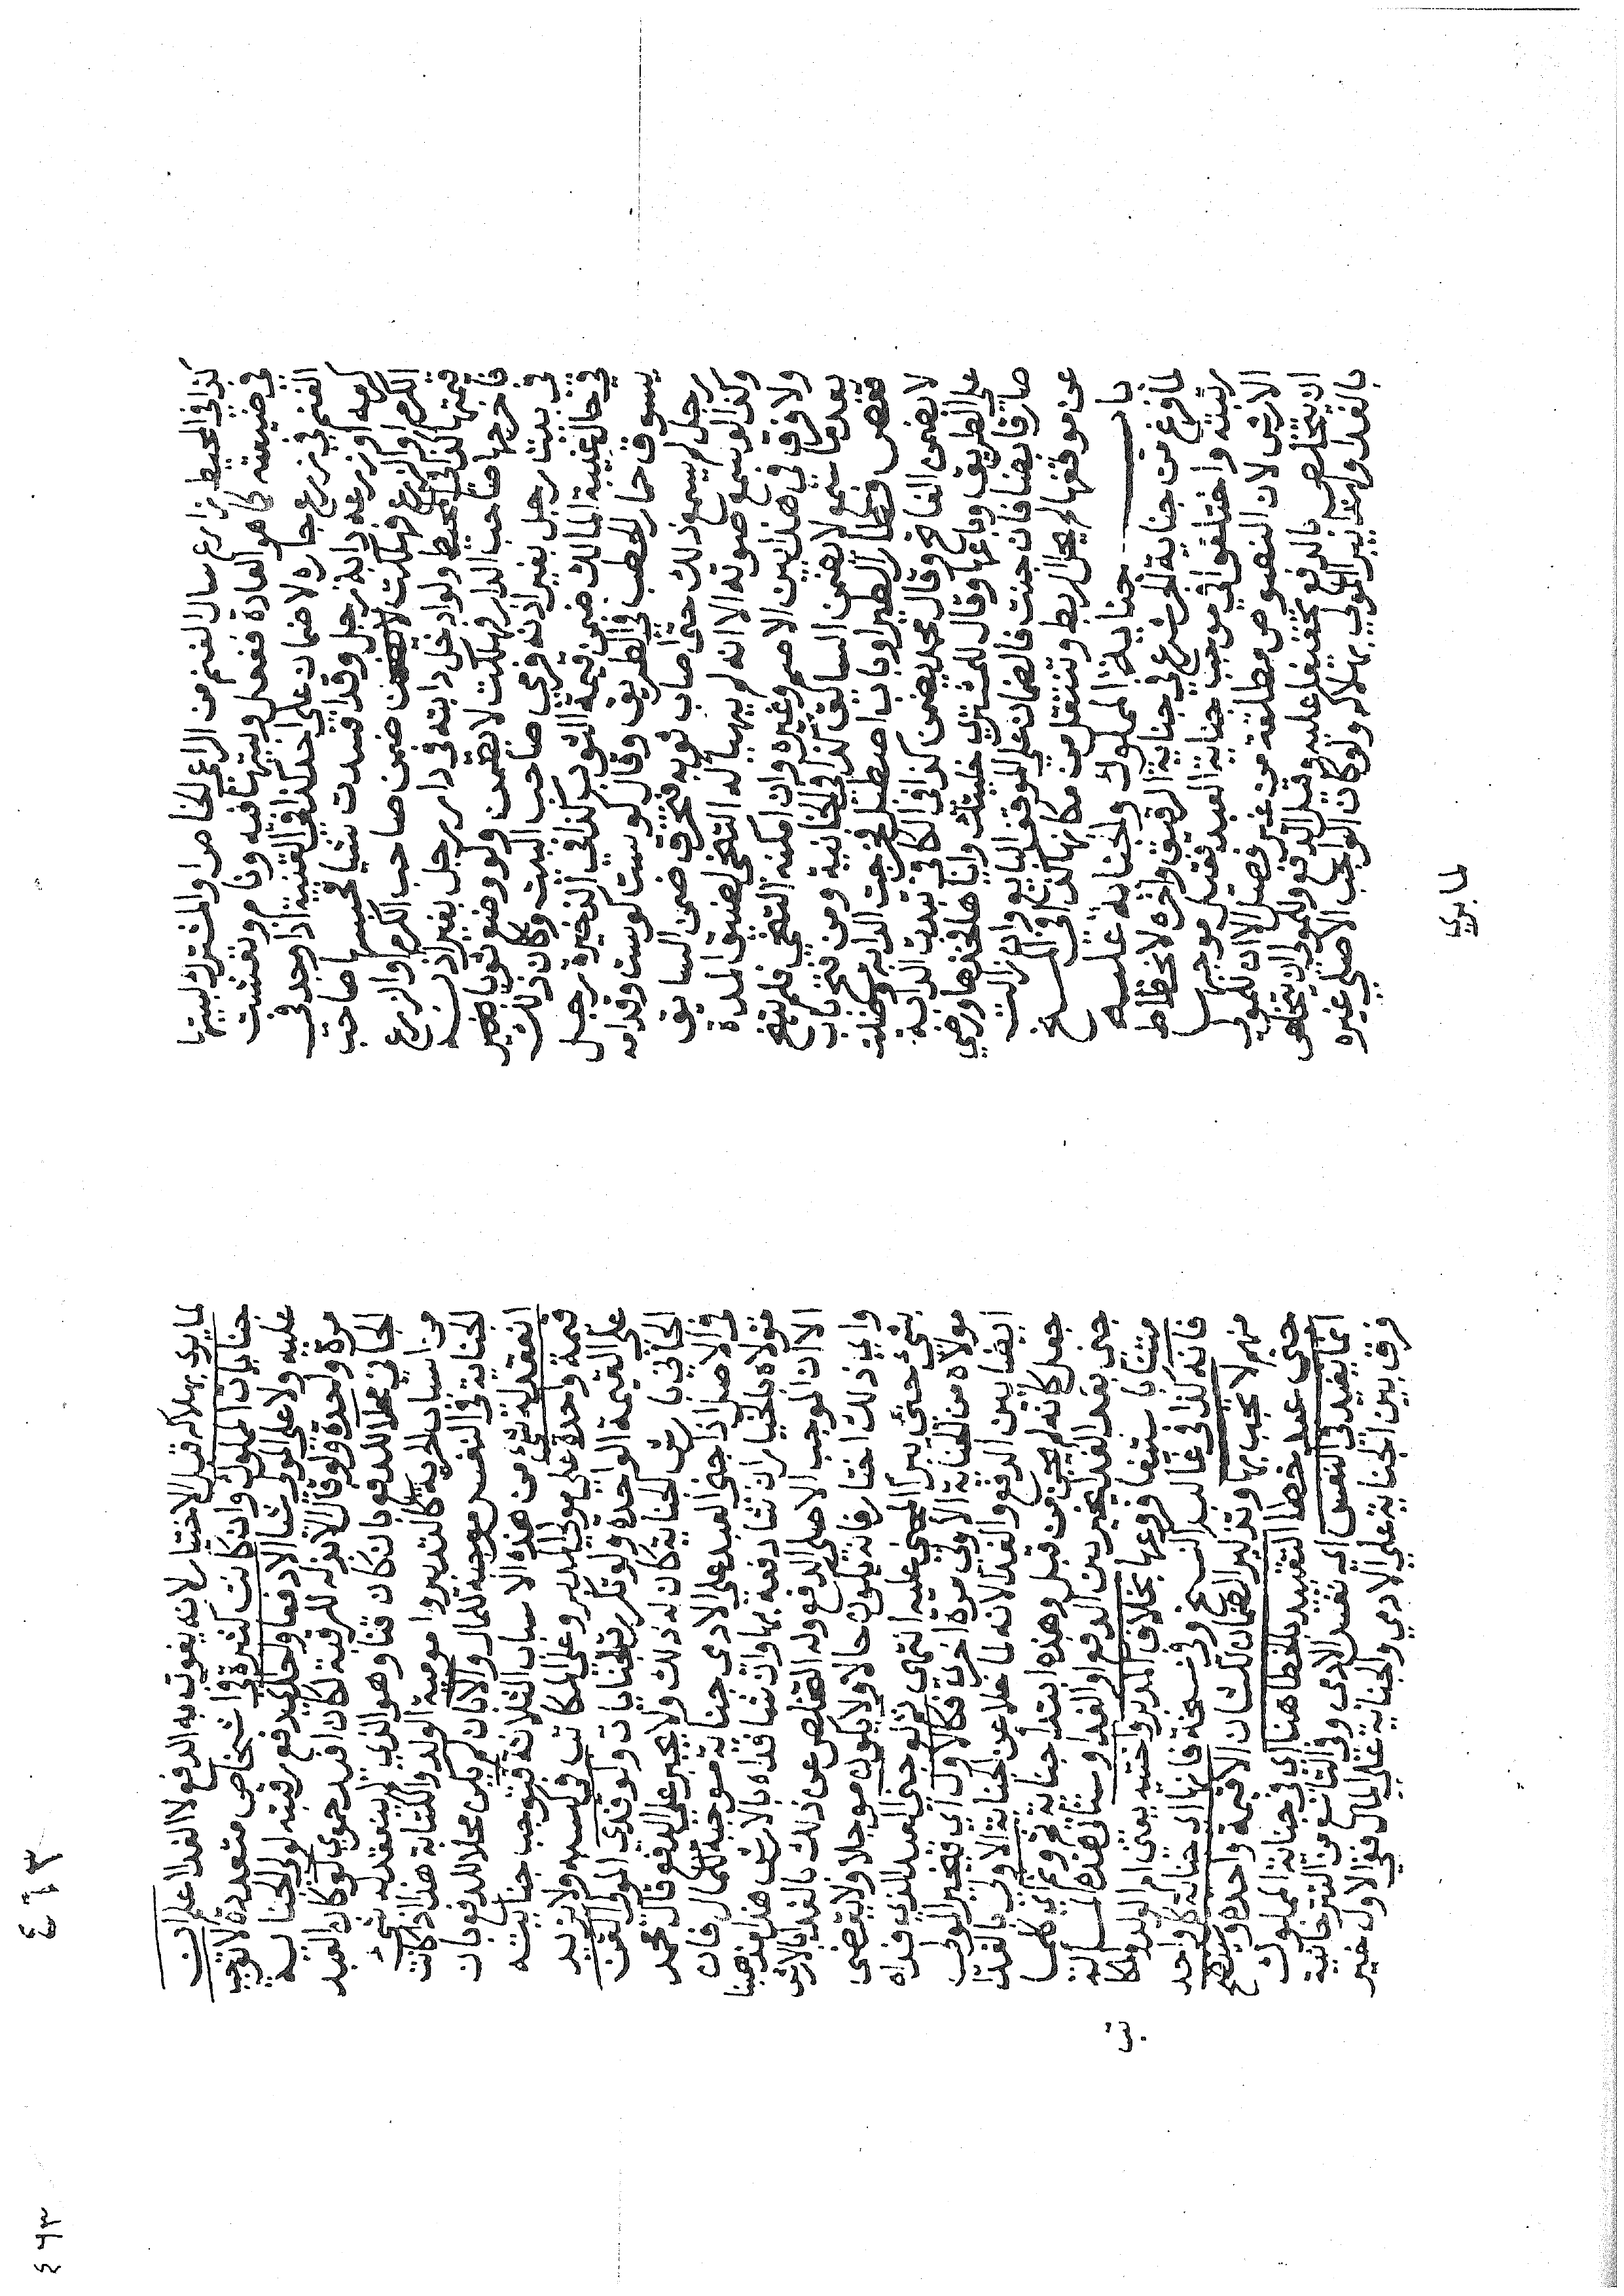 كذا في المحيط زارع سال الغنم من الراعي الخاص او المشترك ليبيتها
في ضيعته كما هو العادة ففعل وبيتها فيه ونام ونفشت
الغنم في زرع جاره لا ضمان على احد كذا في القنية اذا وجد في
كرمه او زرعه دابة رجل وقد افسدت شيا فحبسها صاحب
الكرم او الزرع فهلكت ضمن صاحب الكرم او الزرع
قيمتها كذا في المحيط ولو ادخل دابته في دار رجل بغير اذنه
فاخرجها صاحب الدار فهلكت لا يضمن ولو وضع ثوبا
في بيت رجل بغير اذنه فرمى صاحب البيت وكان ذلك
في حال غيبة المالك ضمن قيمة الثوب كذا في الذخيرة رجل
يسوق حمار الحطب في الطريق وقال كوست كوست وقدامه
رجل لم يسمع ذلك حتى اصاب ثوبه فتخرق ضمن السايق
وكذا لو سمع صوته الا انه لم يتهيا له التنحي لضيق المدة
ولا فرق في هذا بين الاصم وغيره وان امكنه التنحي فلم يتنح
بعدما سمع لا يضمن السايق كذا في الخانية ومن فتح باب
قفص فطار الطير او باب اصطبل فخرجت الدابة وضلت
لا يضمن الفاتح وقال محمد يضمن كذا في الكافي ندت الدابة
على الطريق وباعها وقال للمشتري خليتك واياها فخذها ورضي
صار قابضا فان جنت فالضمان على الموقف البايع وان زالت
عن موقفها لم يحل ربط وتنتقل من مكانها كذا في المسخ
باب جناية المملوك والجناية عليه
لما فرغ من جناية الحر شرع في جناية الرقيق واخره لانحطاط
رتبته واختلفوا في موجب جناية العبد فقيل موجبها
الارش لان النصوص مطلقة من غير فصل الا ان للمولى
ان يتخلص بالدفع تخفيفا عليه وقيل الدفع وللمولى ان يتخلص
بالفداء ولهذا يبرا المولى بهلاكه ولو كان الواجب الاصلي غيره
لما بري
لما بري بهلاكه قبل الاختيار لانه يفوت به الدفع لا الفدا اعلم ان
جنايات المملوك وان كانت كثيرة في اشخاص متعددة لا توجب
عليه ولا على المولى شيا الا دفعا واحدا يدفع رقبته لولي الجناية
مرة واحدة ولو قال الا بدله للرقبة لكان افيد حموي لو كان العبد
الجاني محلا للدفع بان كان قنا وهو الذي لم ينعقد له شي
من اسباب الحرية كالتدبير وامومية الولد والكتابة هذا اذا كانت
الجناية في النفس موجبة للمال والا بان لم يكن محلا للدفع بان
انعقد له شي من هذه الاسباب الثلاثة فتوجب جنايته
قيمة واحدة على مولى المدبر وعلى المكاتب في كسبه ولا يزيد
على القيمة الواحدة ولو تكررت الجنايات ولو فدي المولى القن
الجاني بارش الجناية كان له ذلك ولا يجبر على الدفع وقال محمد
في الاصل اذا جنى العبد على الادمي جناية موجبة للمال فان
مولاه بالخيار ان شا دفعه بها وان شا فداه بالارش هذا مذهبنا
الا ان الموجب الاصلي الدفع وله التخلص عن ذلك بالفدا بالارش
واي ذلك اختار فانه يكون حالا ولا يكون موجلا ولا يقضي
بشي حتى يبرا المجني عليه انتهى ثم لو جنى العبد الذي فداه
مولاه من الجناية الاولى مرة اخرى فكالاول اي فتخير المولى
ايضا بين الدفع والفدا لانه لما خلا عن الجناية الاولى بالفدا
جعل كانه لم يجن من قبل وهذه ابتدا جناية ثم وثم اي كلما
جنى بعد الفدا يخير بين الدفع او الفدا وستاتي هذه المسالة
متنا باستيفا فروعها بخلاف المدبر واختيه يعني ام الولد والمكا
فانه كذا في غالب النسخ وفي نسخة فانها اي جناية كل واحد
منهم لا يجب بها وتذكير الضمان للشان الا قيمة واحدة ويتضح
جنى عبد خطا التقييد بالخطا هنا اي في جناية المملوك
انما يفيد في النفس اي نفس الادمي وفي التاسع من التترخانية
فرق بين الجناية على الادمي والجناية على المال ففي الاول خير
ن
٤٦٣
٤٦٣